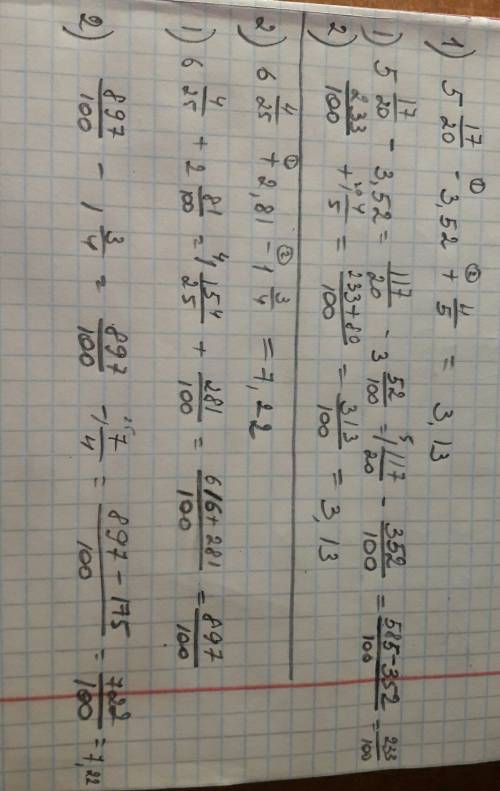 1) 5 17/20 - ① 3,52 + ② 4/5 = 3,13
1) 5 17/20 - 3,52 = 117/20 - 3 52/100 = 5\ 117/20 - 352/100 = 585-352/100 = 233/100
2) 233/100 + 20\ 4/5 = 233+80/100 = 313/100 = 3,13
2) 6 4/25 + ① 2,81 - ② 1 3/4 = 7,22
1) 6 4/25 + 2 81/100 = 4\ 154/25 + 281/100 = 616+281/100 = 897/100
2) 897/100 - 1 3/4 = 897/100 - 25\ 7/4 = 897-175/100 = 722/100 = 7,22